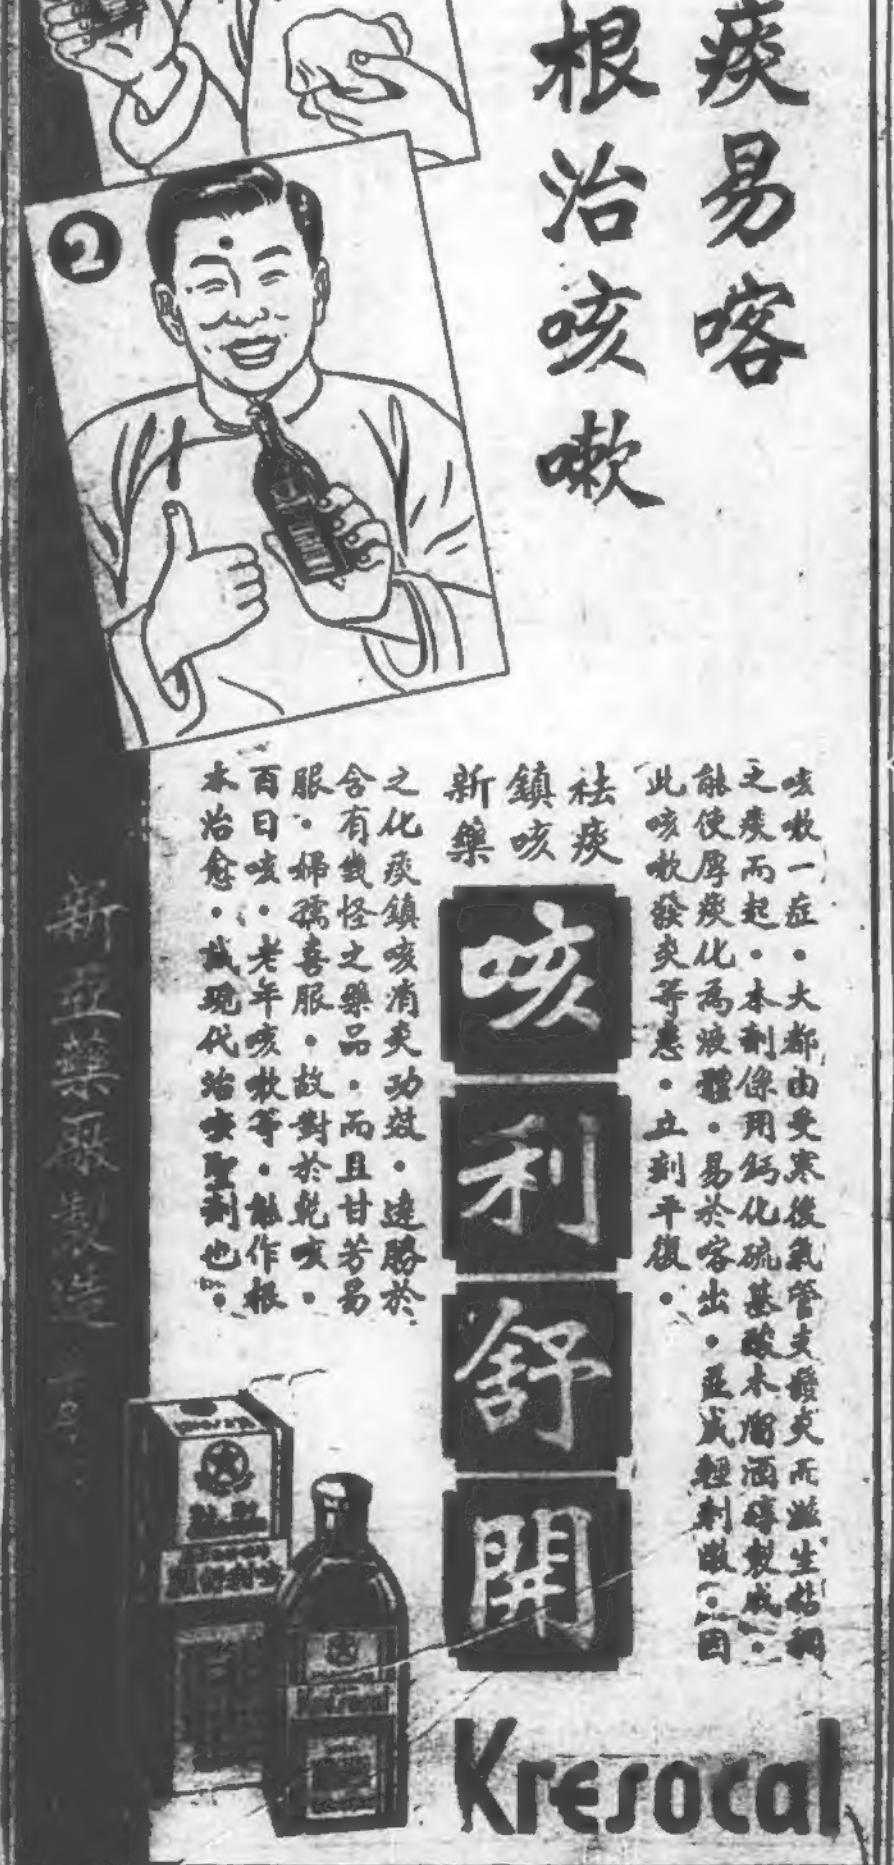 痰易喀
根治咳嗽
2
咳嗽一症・大都由受寒後氣管支發炎而滋生粘稠
之痰而起・本劑係用鈣化硫基酸木溜酒精製成・
能使厚痰化為液體・易於喀出・並減輕刺激・因
此咳嗽發炎等患・立刻平復・
祛痰
鎮咳
新藥
咳利舒開
之化痰鎮咳消炎功效・遠勝於
含有幾怪之藥品・而且甘芳易
服・婦孺喜服・故對於乾咳・
百日咳・老年咳嗽等・能作根
本治愈・誠現代治咳聖劑也・
新亞藥廠製造
Kresocal
Kresocal